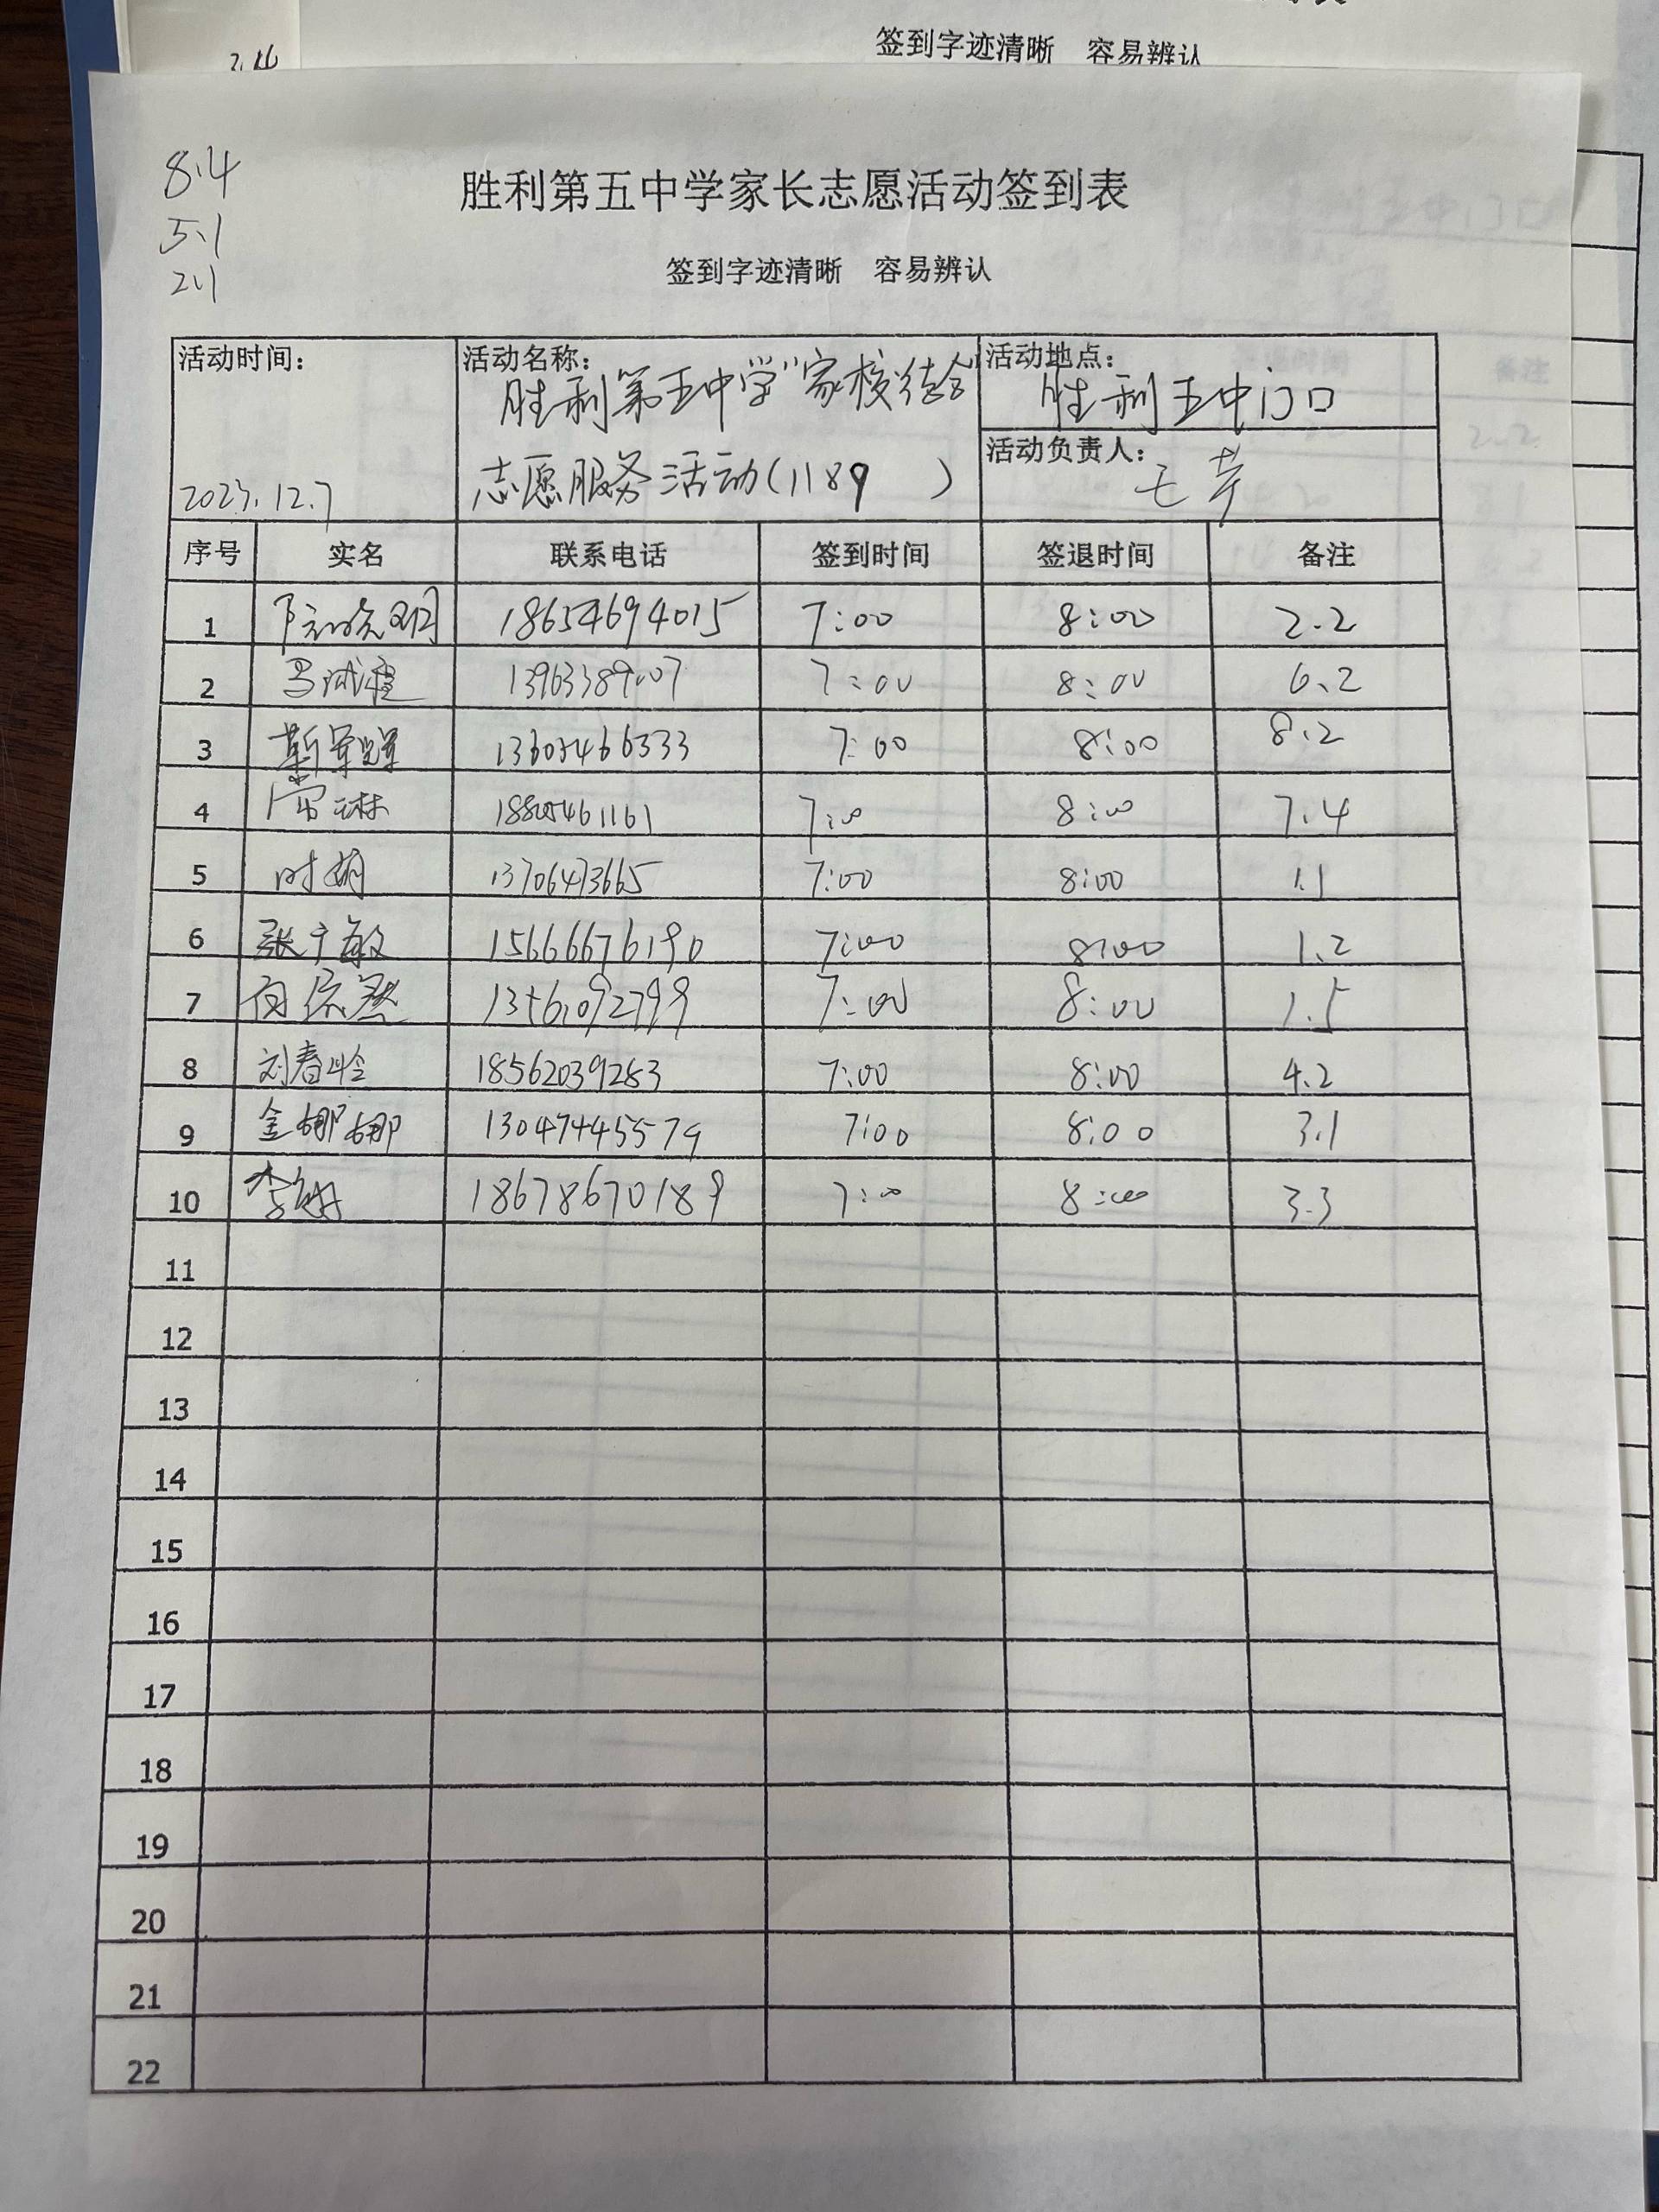 签到字迹清晰 容易辨认
8.4
5.1
2.1
胜利第五中学家长志愿活动签到表
签到字迹清晰 容易辨认
活动时间: 2023.12.7
活动名称: 胜利第五中学"家校结合
志愿服务活动(1189 )
活动地点: 胜利五中门口
活动负责人:
序号 实名 联系电话 签到时间 签退时间 备注
1 18654694015 7:00 8:00 2.2
2 7:00 8:00 6.2
3 靳军辉 13605466333 7:00 8:00 8.2
4 常琳 18805461161 7:00 8:00 7.4
5 时娟 13706473665 7:00 8:00 1.1
6 张宁敏 15666676190 7:00 8:00 1.2
7 13561092799 7:00 8:00 1.5
8 刘春岭 18562039283 7:00 8:00 4.2
9 金娜娜 13047445579 7:00 8:00 3.1
10 李 18678670189 7:00 8:00 3.3
11
12
13
14
15
16
17
18
19
20
21
22